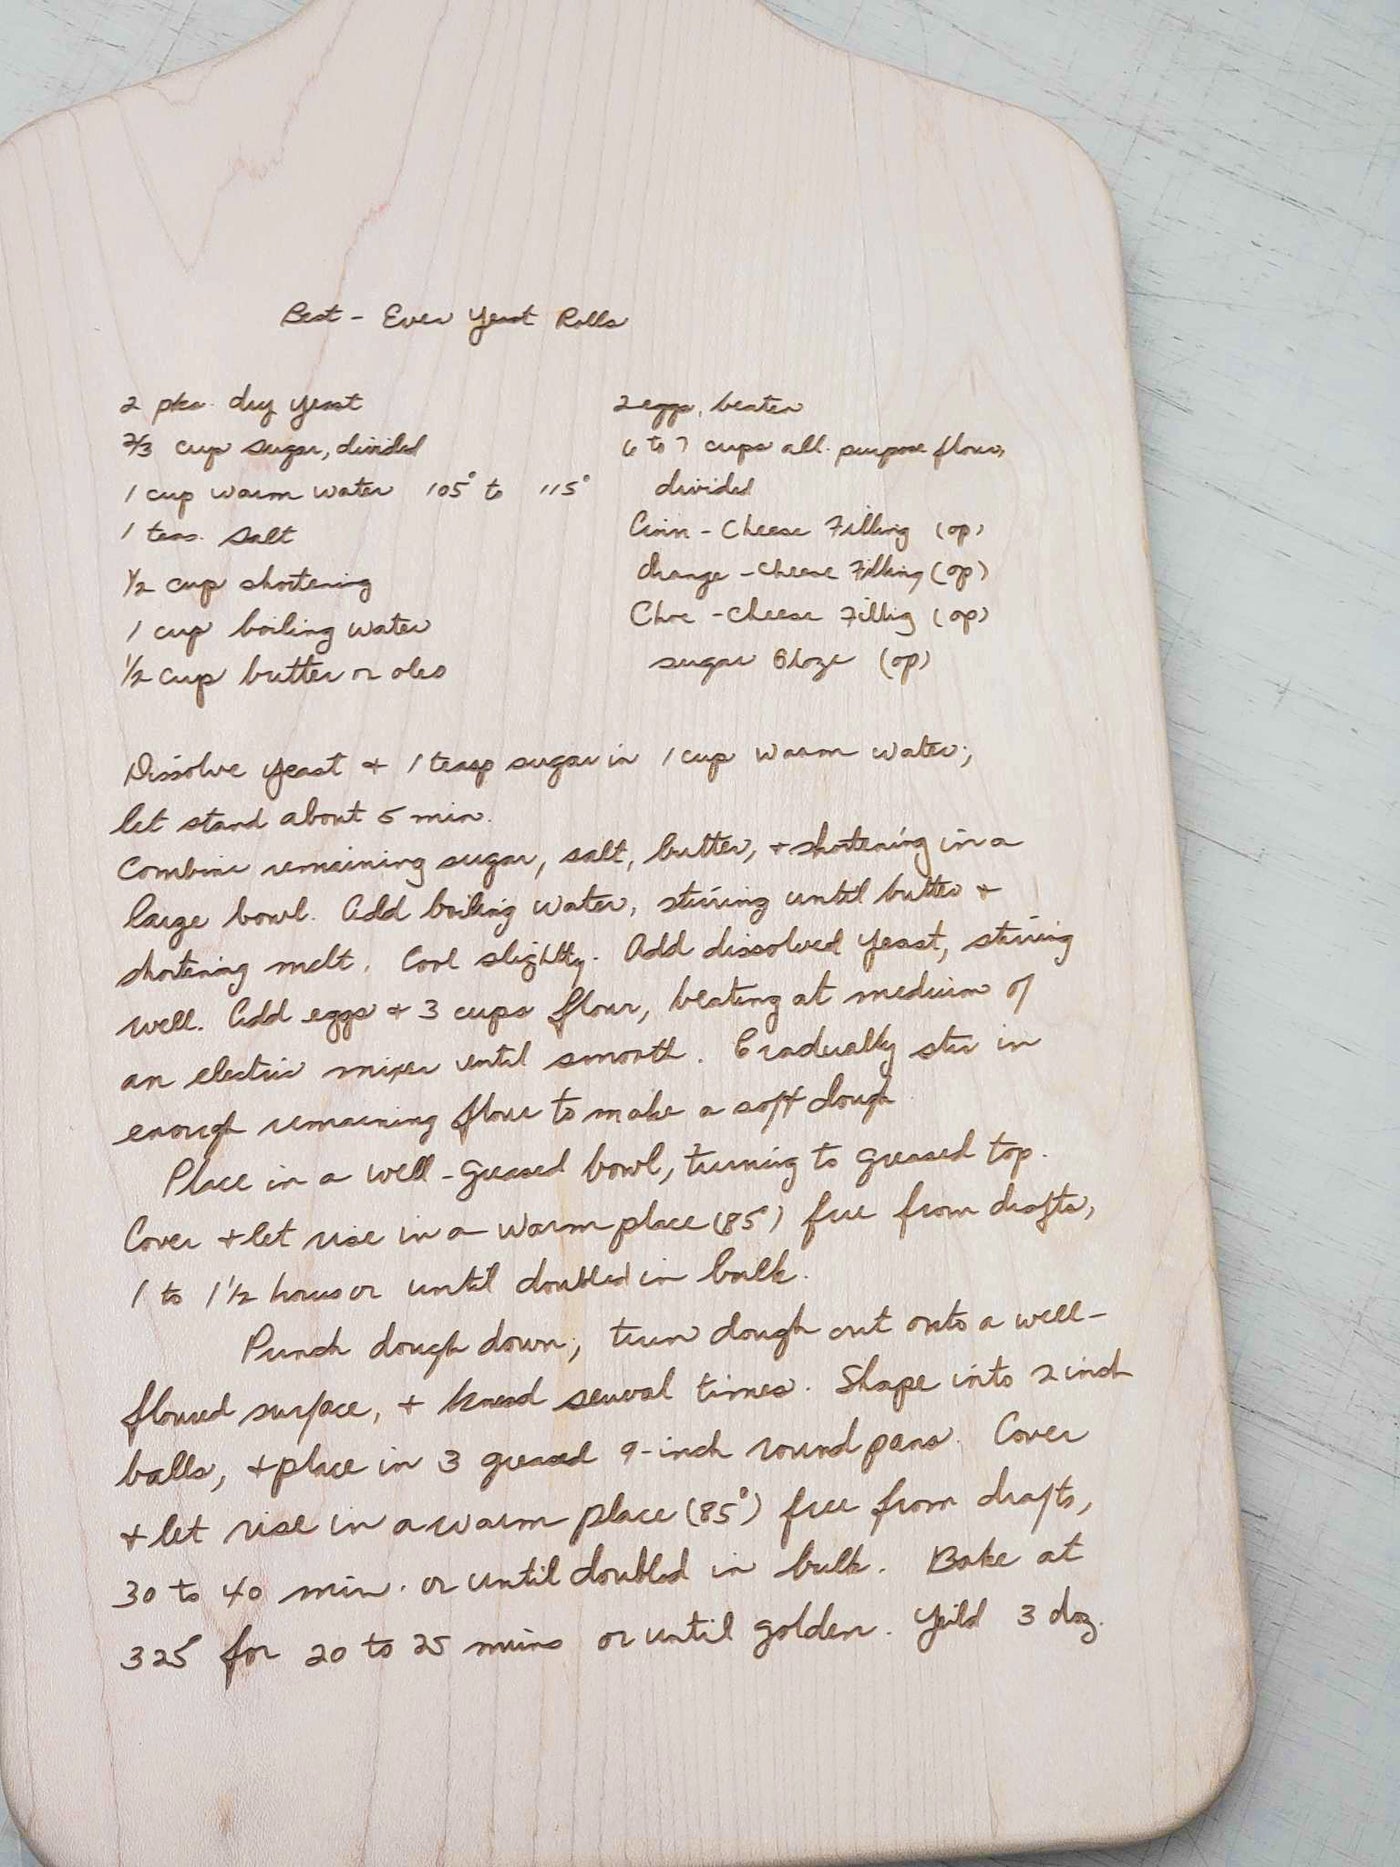 Best - Ever Yeast Rolls
2 pks. dry yeast
2/3 cup sugar, divided
1 cup warm water 105° to 115°
1 teas. salt
1/2 cup shortening
1 cup boiling water
1/2 cup butter or oleo
2 eggs, beaten
6 to 7 cups all. purpose flour,
divided
Cinn - Cheese Filling (op)
Orange - Cheese Filling (op)
Choc - Cheese Fillig (op)
sugar Glaze (op)
Dissolve yeast + 1 teasp sugar in 1 cup warm water;
let stand about 5 min.
Combine remaining sugar, salt, butter, + shortening in a
large bowl. Add boiling water, stirring until butter +
shortening melt. Cool slightly. Add dissolved yeast, stirring
well. Add eggs + 3 cups flour, beating at medium of
an electric mixer until smooth. Gradually stir in
enough remaining flour to make a soft dough
Place in a well-greased bowl, turning to greased top.
Cover + let rise in a warm place (85°) free from drafts,
1 to 1 1/2 hours or until doubled in bulk.
Punch dough down; turn dough out onto a well-
floured surface, + knead several times. Shape into 2 inch
balls, + place in 3 greased 9-inch round pans. Cover
+ let rise in a warm place (85°) free from drafts,
30 to 40 min. or until doubled in bulk. Bake at
325° for 20 to 25 mins or until golden. Yeild 3 doz.